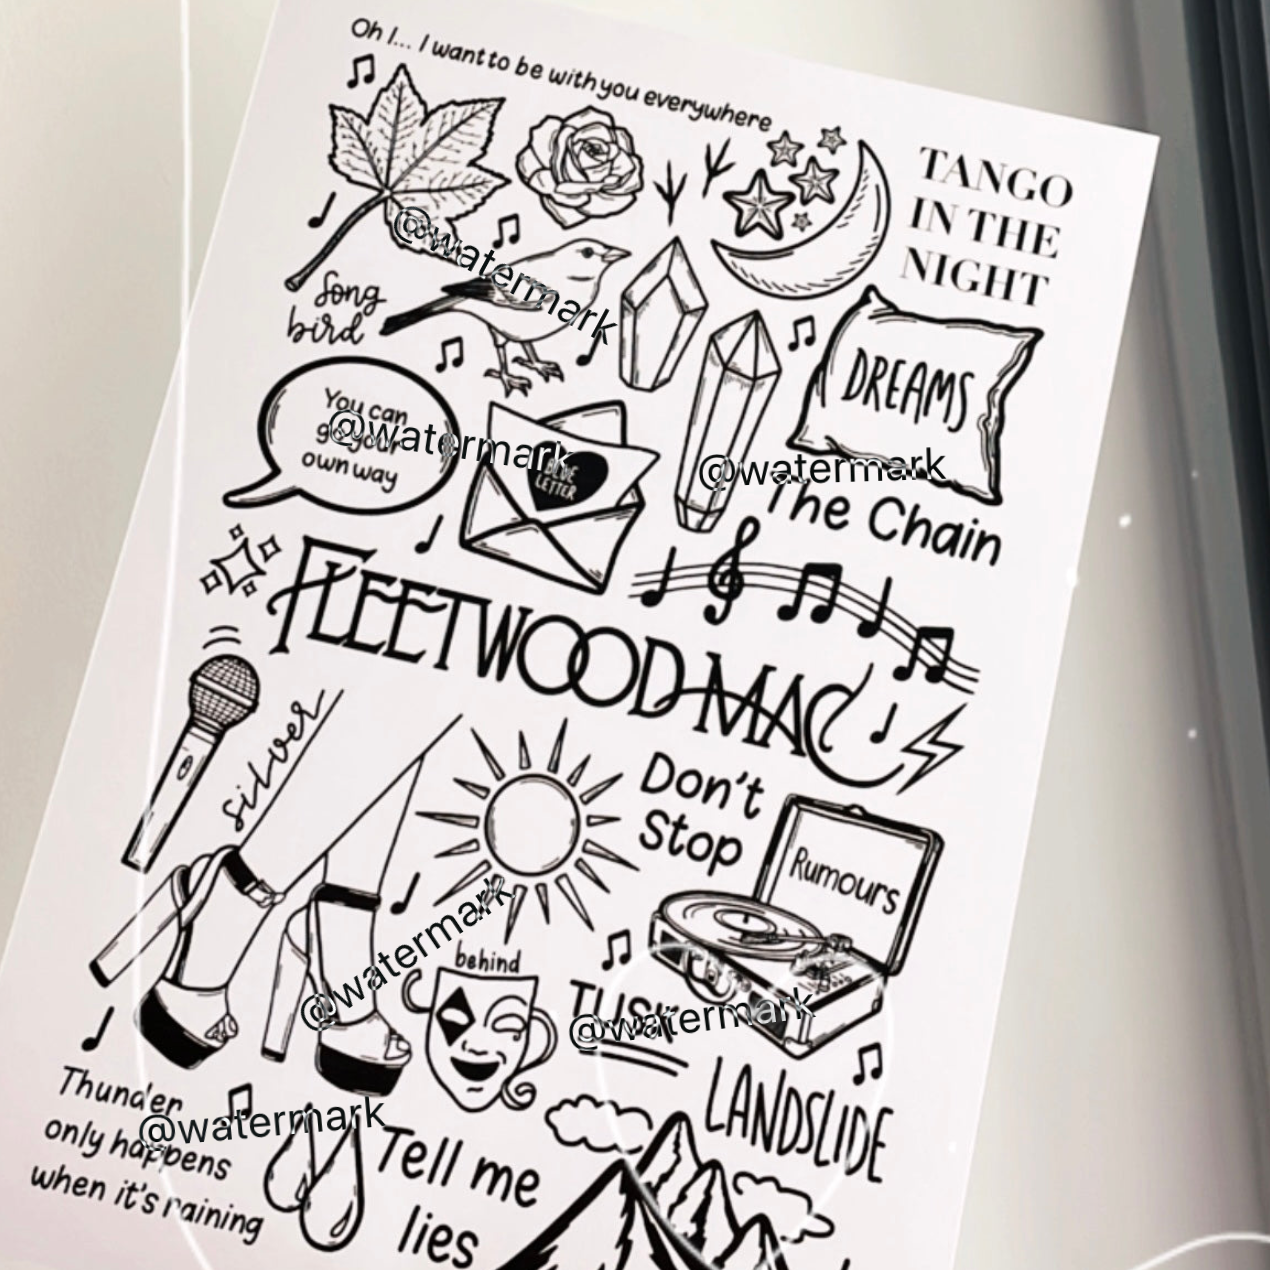 Oh I... I want to be with you everywhere
TANGO
IN THE
NIGHT
@watermark
Song
bird
DREAMS
You can
go your
own way
@watermark
BLUE
LETTER
@watermark
The Chain
FLEETWOOD MAC
silver
Don't
Stop
Rumours
@watermark
behind
TUSK
@watermark
LANDSLIDE
Thunder
only happens
when it's raining
@watermark
Tell me
lies